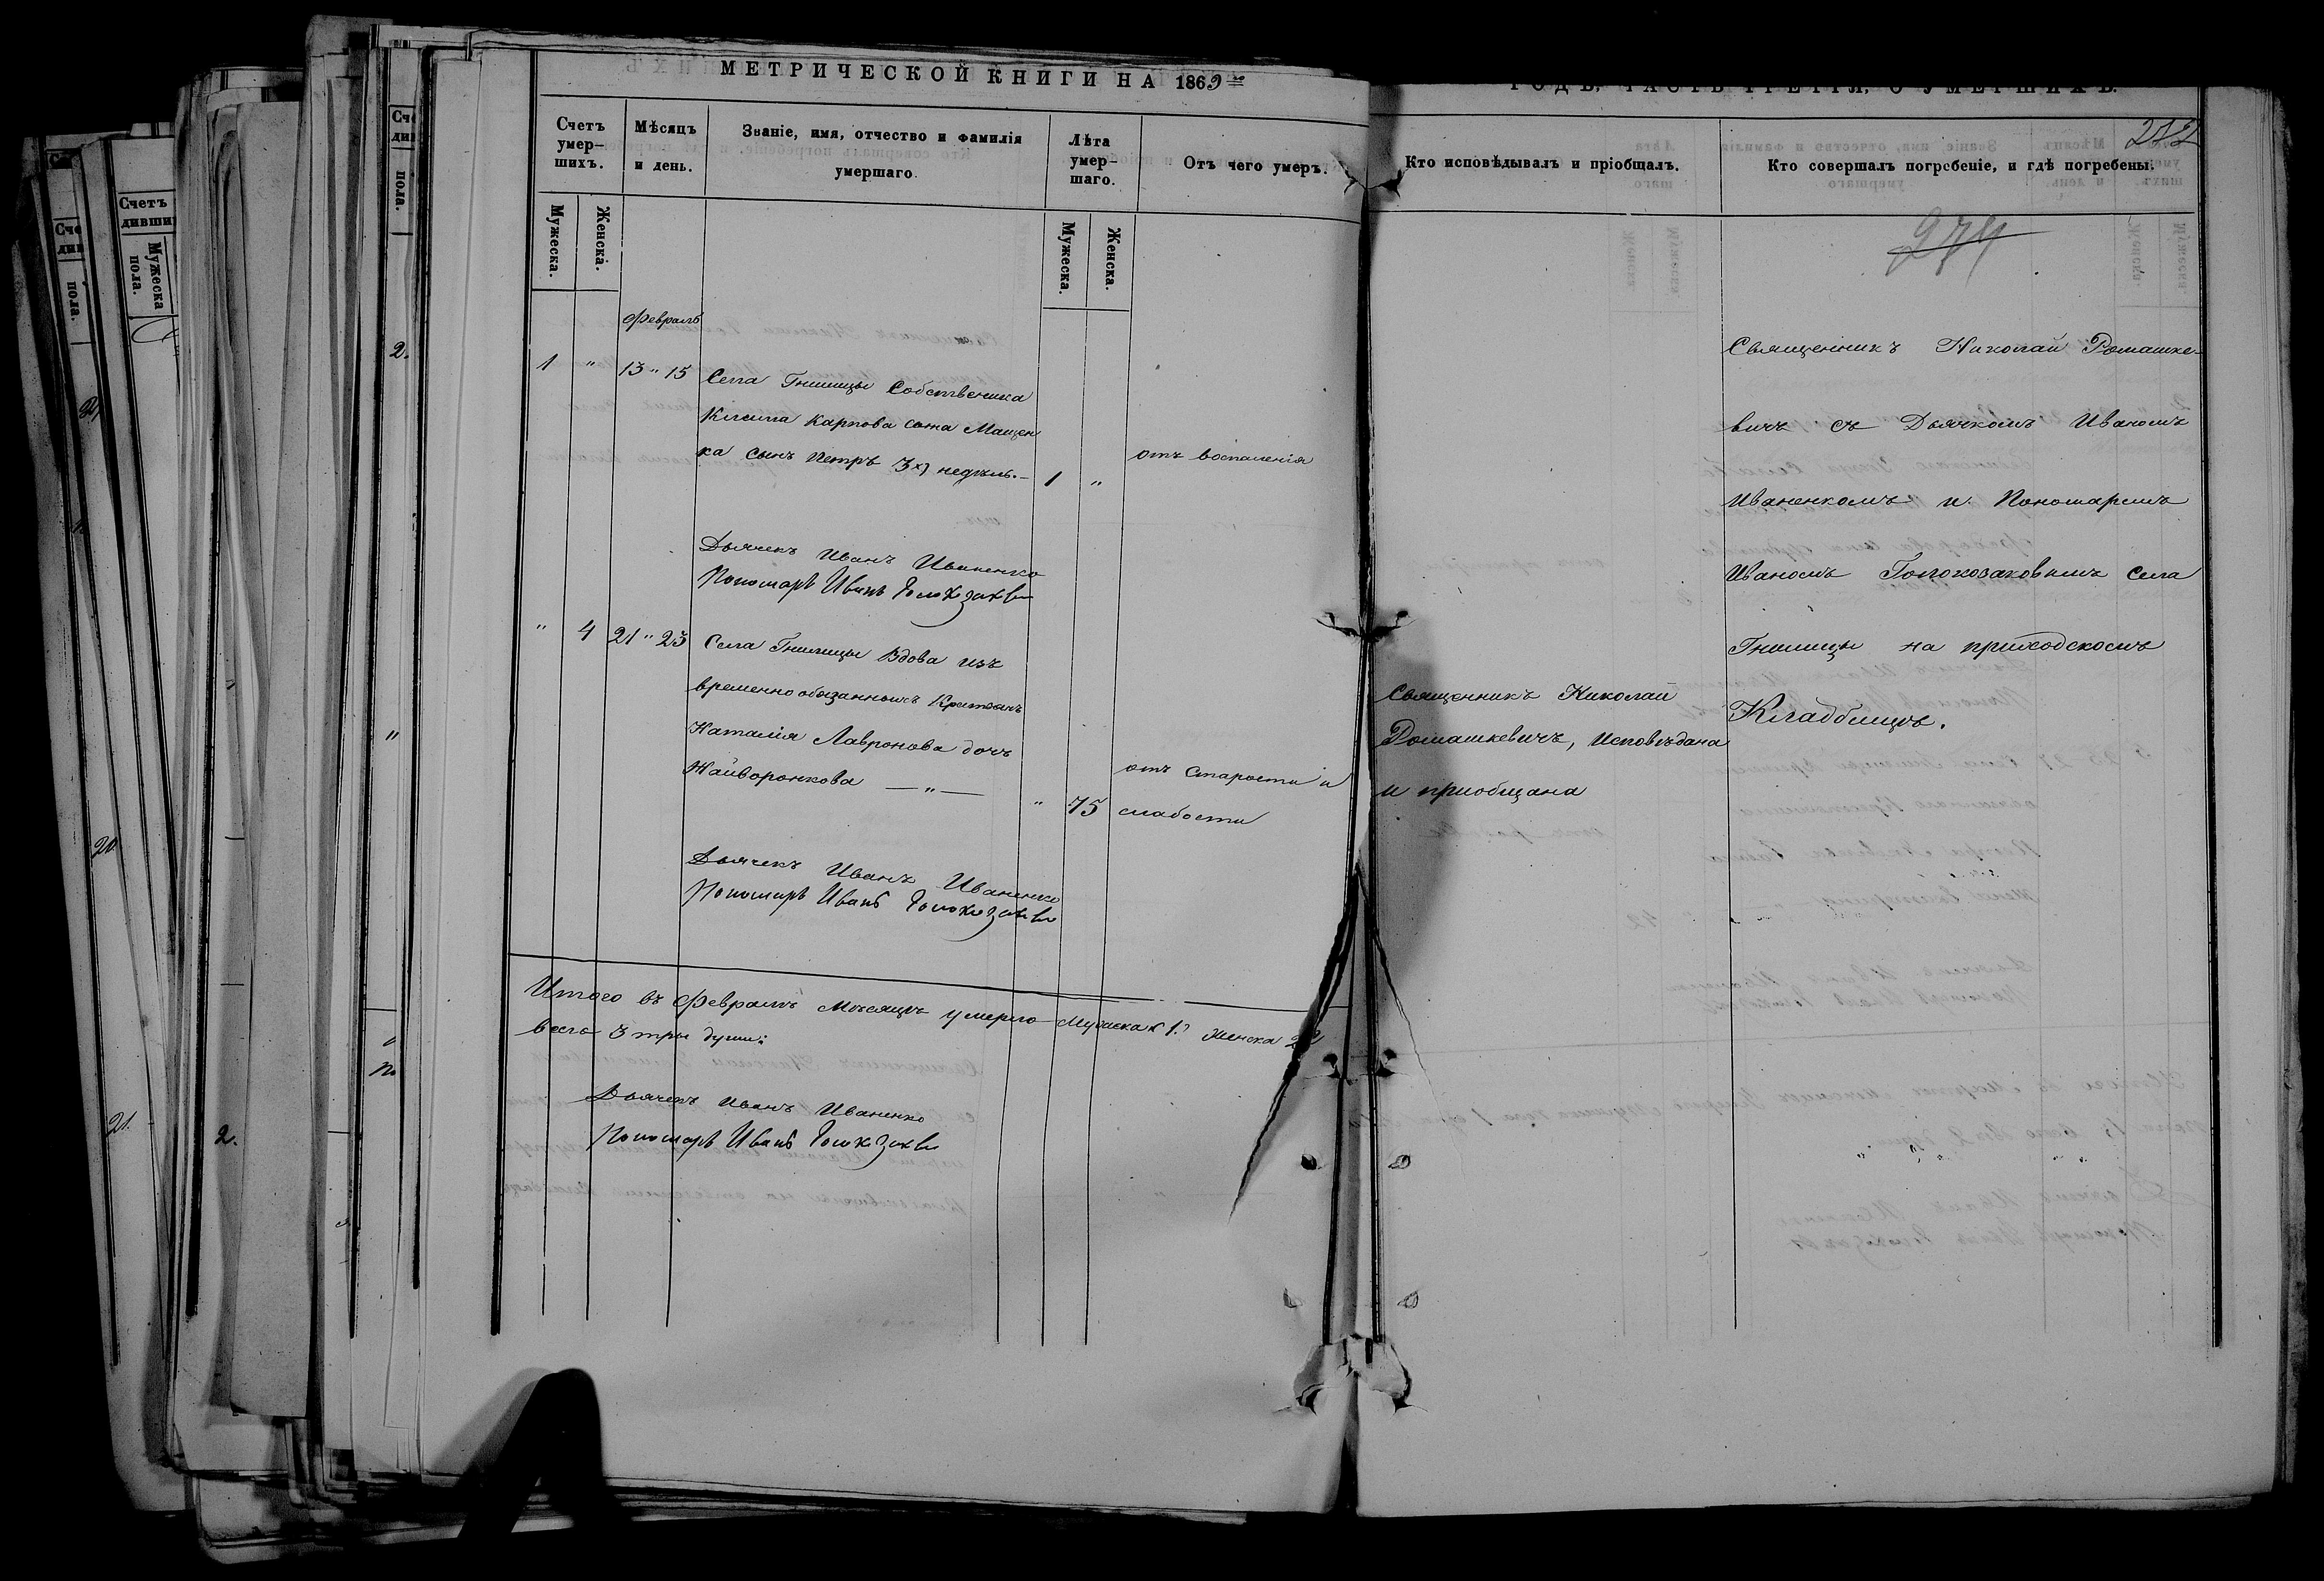 МЕТРИЧЕСКОЙ КНИГИ НА 1869
ГОДЪ, ЧАСТЬ ТРЕТІЯ, О УМЕРШИХЪ.
Счетъ умер-шихъ.
Мужеска.
Женска.
Мѣсяцъ и день.
Званіе, имя, отчество и фамилія умершаго.
Лѣта умер-шаго.
Мужеска.
Женска.
Отъ чего умеръ.
Кто исповѣдывалъ и пріобщалъ.
Кто совершалъ погребеніе, и гдѣ погребены.
274
Февраль
1 " 13 " 15 Села Гнилицы Собственика
Клима Карпова сына Мащен
ка сынъ Петръ 3х недѣль. — 1 " отъ воспаленія
Дьячекъ Иванъ Иваненко
Пономарь Иванъ
" 4 21 " 23 Села Гнилицы Вдова изъ
временнообязанныхъ Крестьянъ
Наталія Лавронова дочь
Жайворонкова — " — " 75 отъ старости и
слабости
Дьячекъ Иванъ Иваненко
Пономарь Иванъ
Итого въ Февралѣ Мѣсяцѣ умерло Мужеска 1. Женска 2
всего 3 три души:
Дьячекъ Иванъ Иваненко
Пономарь Иванъ
Священникъ Николай
Ромашкевичъ, Исповѣдана
и приобщана
Священникъ Николай Ромашке-
вичъ съ Дьячкомъ Иваномъ
Иваненкомъ и Пономаремъ
Иваномъ Голокозаковымъ села
Гнилицы на приходскомъ
Кладбищѣ.